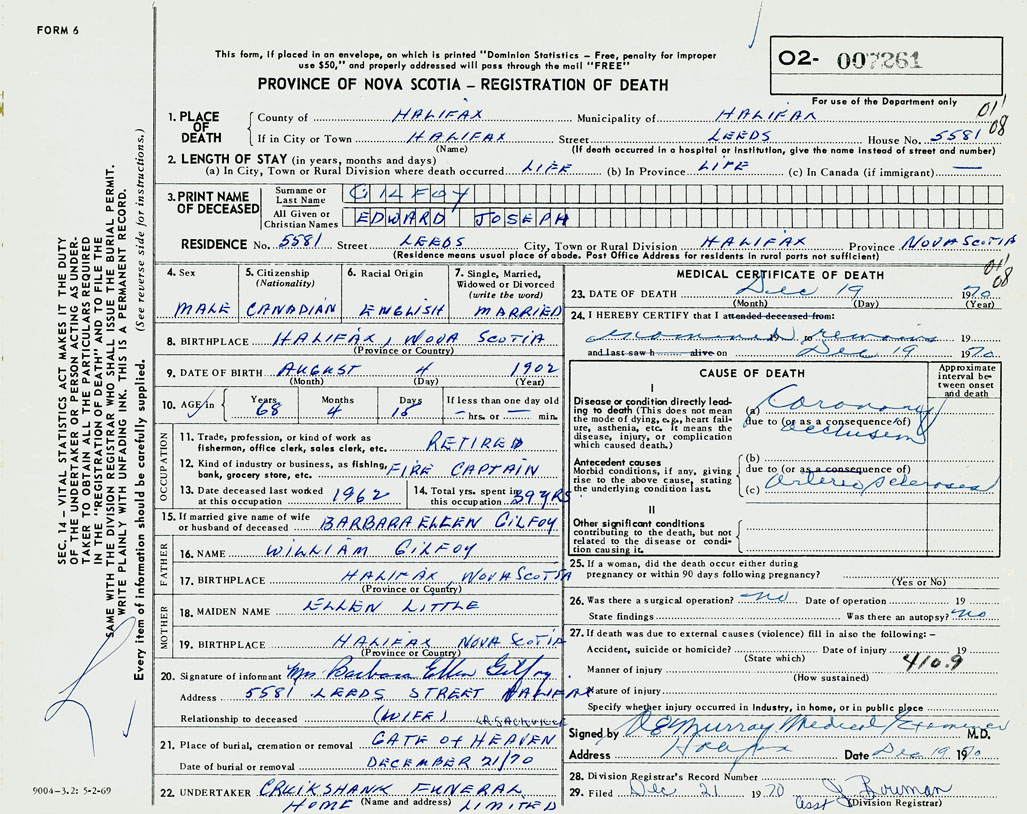 FORM 6
This form, if placed in an envelope, on which is printed "Dominion Statistics – Free, penalty for improper
use $50," and properly addressed will pass through the mail "FREE"
PROVINCE OF NOVA SCOTIA – REGISTRATION OF DEATH
02- 007261
For use of the Department only
01' 08
1. PLACE OF DEATH
County of HALIFAX Municipality of HALIFAX
If in City or Town HALIFAX Street LEEDS House No. 5581
(Name) (If death occurred in a hospital or institution, give the name instead of street and number)
2. LENGTH OF STAY (in years, months and days)
(a) In City, Town or Rural Division where death occurred LIFE (b) In Province LIFE (c) In Canada (if immigrant) —
3. PRINT NAME OF DECEASED
Surname or Last Name GILFOY
All Given or Christian Names EDWARD JOSEPH
RESIDENCE No. 5581 Street LEEDS City, Town or Rural Division HALIFAX Province NOVA SCOTIA
(Residence means usual place of abode. Post Office Address for residents in rural parts not sufficient)
01' 08
4. Sex MALE
5. Citizenship (Nationality) CANADIAN
6. Racial Origin ENGLISH
7. Single, Married, Widowed or Divorced (write the word) MARRIED
8. BIRTHPLACE HALIFAX, NOVA SCOTIA
(Province or Country)
9. DATE OF BIRTH AUGUST 4 1902
(Month) (Day) (Year)
10. AGE in Years 68 Months 4 Days 15 If less than one day old — hrs. or — min.
OCCUPATION
11. Trade, profession, or kind of work as
fisherman, office clerk, sales clerk, etc. RETIRED
12. Kind of industry or business, as fishing,
bank, grocery store, etc. FIRE CAPTAIN
13. Date deceased last worked
at this occupation 1962
14. Total yrs. spent in
this occupation 39 YRS
15. If married give name of wife
or husband of deceased BARBARA ELLEN GILFOY
FATHER
16. NAME WILLIAM GILFOY
17. BIRTHPLACE HALIFAX, NOVA SCOTIA
(Province or Country)
MOTHER
18. MAIDEN NAME ELLEN LITTLE
19. BIRTHPLACE HALIFAX NOVA SCOTIA
(Province or Country)
20. Signature of informant Mrs Barbara Ellen Gilfoy
Address 5581 LEEDS STREET HALIFAX
Relationship to deceased (WIFE)
21. Place of burial, cremation or removal GATE OF HEAVEN LR. SACKVILLE
Date of burial or removal DECEMBER 21/70
22. UNDERTAKER CRUIKSHANK FUNERAL
HOME (Name and address) LIMITED
MEDICAL CERTIFICATE OF DEATH
23. DATE OF DEATH Dec 19 1970
(Month) (Day) (Year)
24. I HEREBY CERTIFY that I attended deceased from:
examined remains 19 to 19
and last saw h alive on Dec 19 1970
CAUSE OF DEATH
Approximate interval between onset and death
I
Disease or condition directly leading to death (This does not mean the mode of dying, e.g., heart failure, asthenia, etc. It means the disease, injury, or complication which caused death.)
(a) Coronary
due to (or as a consequence of)
occlusion
Antecedent causes
Morbid conditions, if any, giving rise to the above cause, stating the underlying condition last.
(b)
due to (or as a consequence of)
(c) Arterio sclerosis
II
Other significant conditions
contributing to the death, but not related to the disease or condition causing it.
25. If a woman, did the death occur either during
pregnancy or within 90 days following pregnancy?
(Yes or No)
26. Was there a surgical operation? no Date of operation 19
State findings Was there an autopsy? no
27. If death was due to external causes (violence) fill in also the following: –
Accident, suicide or homicide? Date of injury 19
(State which)
410.9
Manner of injury
(How sustained)
Nature of injury
Specify whether injury occurred in Industry, in home, or in public place
Signed by Murray Medical Examiner M.D.
Address Halifax Date Dec 19 1970
28. Division Registrar's Record Number
29. Filed Dec 21 1970 J Bowman
Asst (Division Registrar)
SEC. 14 – VITAL STATISTICS ACT MAKES IT THE DUTY
OF THE UNDERTAKER OR PERSON ACTING AS UNDER-
TAKER TO OBTAIN ALL THE PARTICULARS REQUIRED
IN THE "REGISTRATION OF DEATH" AND TO FILE THE
SAME WITH THE DIVISION REGISTRAR WHO SHALL ISSUE THE BURIAL PERMIT.
WRITE PLAINLY WITH UNFADING INK. THIS IS A PERMANENT RECORD.
Every item of information should be carefully supplied. (See reverse side for instructions.)
9004-3.2: 5-2-69